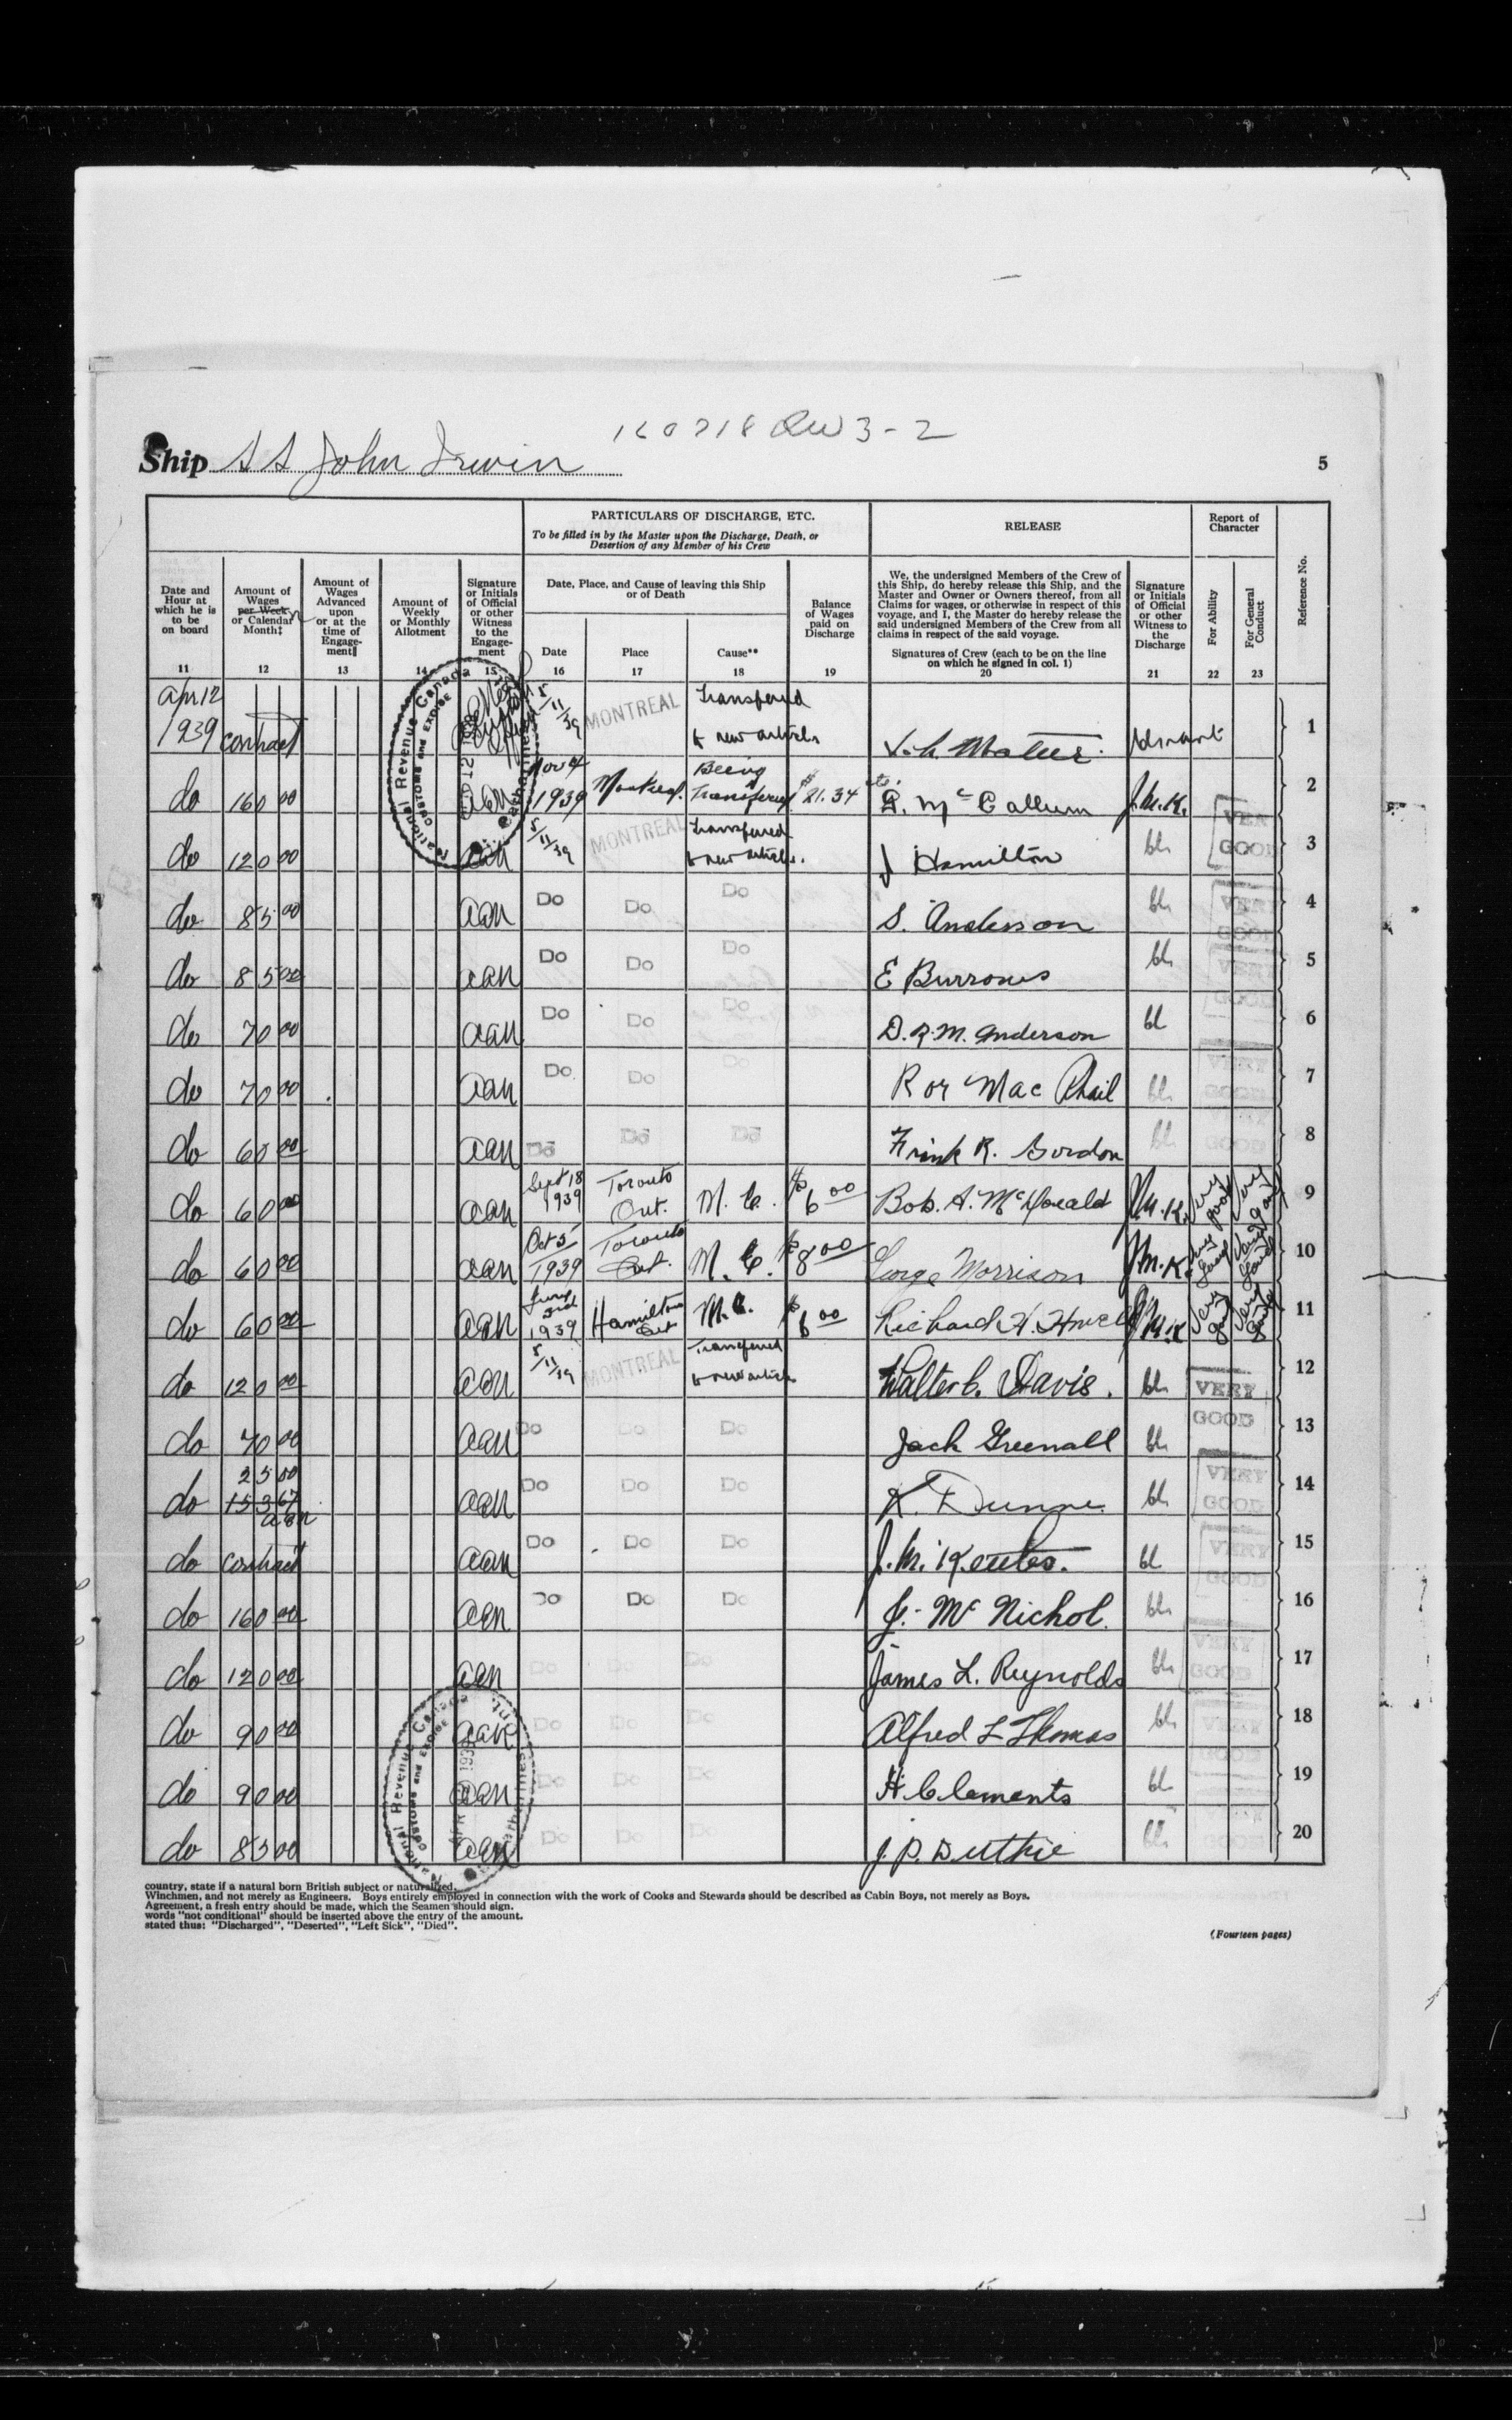 160718 QW 3-2
Ship SS John Irwin
5
PARTICULARS OF DISCHARGE, ETC.
To be filled in by the Master upon the Discharge, Death, or
Desertion of any Member of his Crew
RELEASE
Report of
Character
Date and
Hour at
which he is
to be
on board
11
Amount of
Wages
per Week
or Calendar
Month‡
12
Amount of
Wages
Advanced
upon
or at the
time of
Engage-
ment‖
13
Amount of
Weekly
or Monthly
Allotment
14
Signature
or Initials
of Official
or other
Witness
to the
Engage-
ment
15
Date, Place, and Cause of leaving this Ship
or of Death
Date
16
Place
17
Cause**
18
Balance
of Wages
paid on
Discharge
19
We, the undersigned Members of the Crew of
this Ship, do hereby release this Ship, and the
Master and Owner or Owners thereof, from all
Claims for wages, or otherwise in respect of this
voyage, and I, the Master do hereby release the
said undersigned Members of the Crew from all
claims in respect of the said voyage.
Signatures of Crew (each to be on the line
on which he signed in col. 1)
20
Signature
or Initials
of Official
or other
Witness to
the
Discharge
21
For Ability
22
For General
Conduct
23
Reference No.
National Revenue Canada
Customs and Excise
Apr 12 1939 contract 5/11/39 MONTREAL Transferred to new articles 1
do 160 00 aan Nov 4 1939 Montreal. Being Transferred $21.34 D. McCallum J.M.K. 2
do 120 00 aan 5/11/39 MONTREAL Transferred to new articles. J Hamilton bh VERY GOOD 3
do 85 00 aan Do Do Do S. Anderson bh VERY GOOD 4
do 85 00 aan Do Do Do E Burrows bh VERY GOOD 5
do 70 00 aan Do Do Do D.R.M. Anderson bh 6
do 70 00 aan Do Do Do Roy MacPhail bh VERY GOOD 7
do 60 00 aan Do Do Do Frank R. Gordon bh VERY GOOD 8
do 60 00 aan Sept 18 1939 Toronto Ont. M.C. $6 00 Bob. A. McDonald J.M.K. Very good Very good 9
do 60 00 aan Oct 5 1939 Toronto Ont. M.C. $8 00 George Morrison J.M.K. Very Good Very Good 10
do 60 00 aan June 3rd 1939 Hamilton Ont M.C. $6 00 Richard H. Howell J.M.K Very Good Very Good 11
do 120 00 aan 5/11/39 MONTREAL Transferred to new articles Walter C. Davis. bh VERY GOOD 12
do 70 00 aan Do Do Do Jack Greenall bh 13
do 25 00 153 67 aan aan Do Do Do K. Dunne bh VERY GOOD 14
do contract aan Do Do Do bh VERY GOOD 15
do 160 00 aan Do Do Do J. McNichol. bh 16
do 120 00 aan Do Do Do James L. Reynolds bh VERY GOOD 17
do 90 00 aan Do Do Do Alfred L Thomas bh VERY GOOD 18
do 90 00 aan Do Do Do H Clements bh 19
do 85 00 aan Do Do Do J. P. Duthie bh 20
National Revenue Canada
Customs and Excise
country, state if a natural born British subject or naturalized.
Winchmen, and not merely as Engineers. Boys entirely employed in connection with the work of Cooks and Stewards should be described as Cabin Boys, not merely as Boys.
Agreement, a fresh entry should be made, which the Seamen should sign.
words "not conditional" should be inserted above the entry of the amount.
stated thus: "Discharged", "Deserted", "Left Sick", "Died".
(Fourteen pages)